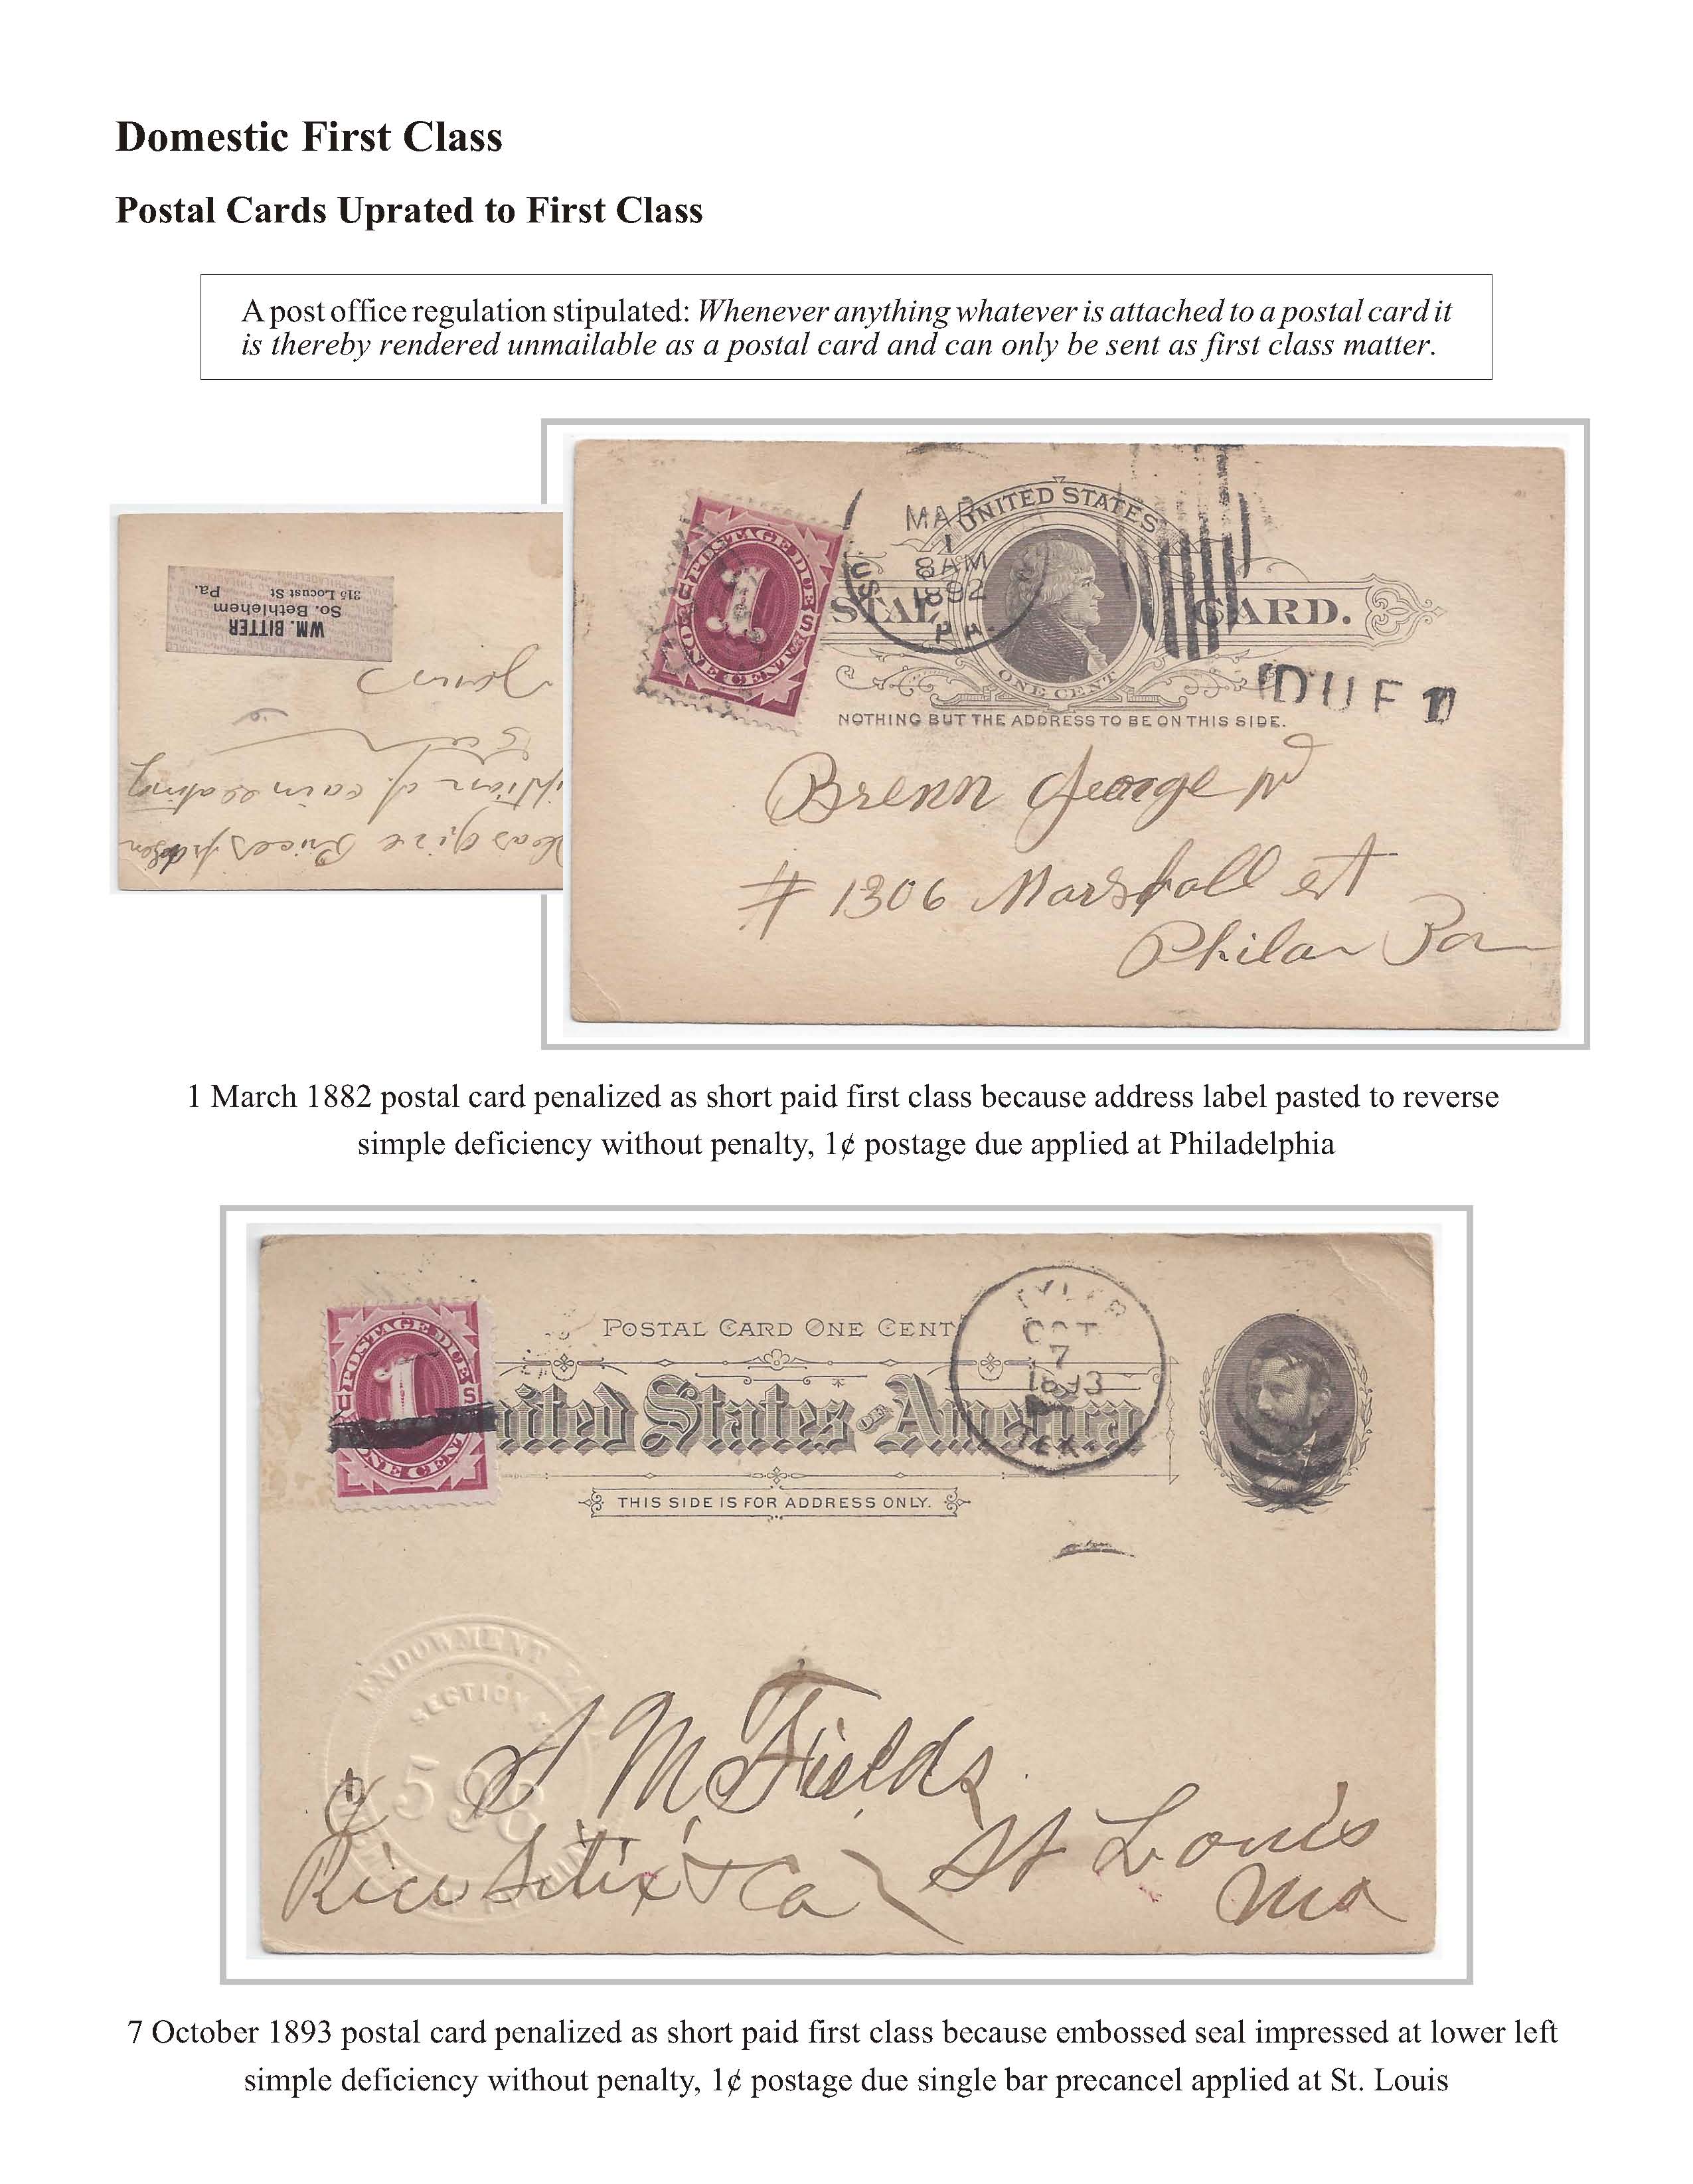 Domestic First Class
Postal Cards Uprated to First Class
A post office regulation stipulated: Whenever anything whatever is attached to a postal card it
is thereby rendered unmailable as a postal card and can only be sent as first class matter.
WM. BITTER
So. Bethlehem
315 Locust St Pa.
Yours
give Prices
of cain seating
POSTAGE DUE
1
ONE CENT
U S
MAR
1
8 AM
1892
PA.
UNITED STATES
STAL CARD.
ONE CENT
NOTHING BUT THE ADDRESS TO BE ON THIS SIDE.
DUE 1
Brenn George W
# 1306 Marshall st
Phila Pa
1 March 1882 postal card penalized as short paid first class because address label pasted to reverse
simple deficiency without penalty, 1¢ postage due applied at Philadelphia
POSTAGE DUE
1
U S
ONE CENT
POSTAL CARD ONE CENT
nited States OF America
THIS SIDE IS FOR ADDRESS ONLY.
TYLER
OCT
7
1893
TEX
ENDOWMENT
SECTION
598
S M Fields
c/o Rice Stix & Co St Louis
Mo
7 October 1893 postal card penalized as short paid first class because embossed seal impressed at lower left
simple deficiency without penalty, 1¢ postage due single bar precancel applied at St. Louis